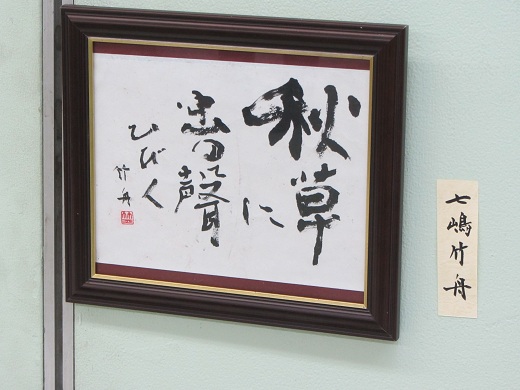 秋草
に
虫の聲
ひびく
竹舟
七嶋竹舟